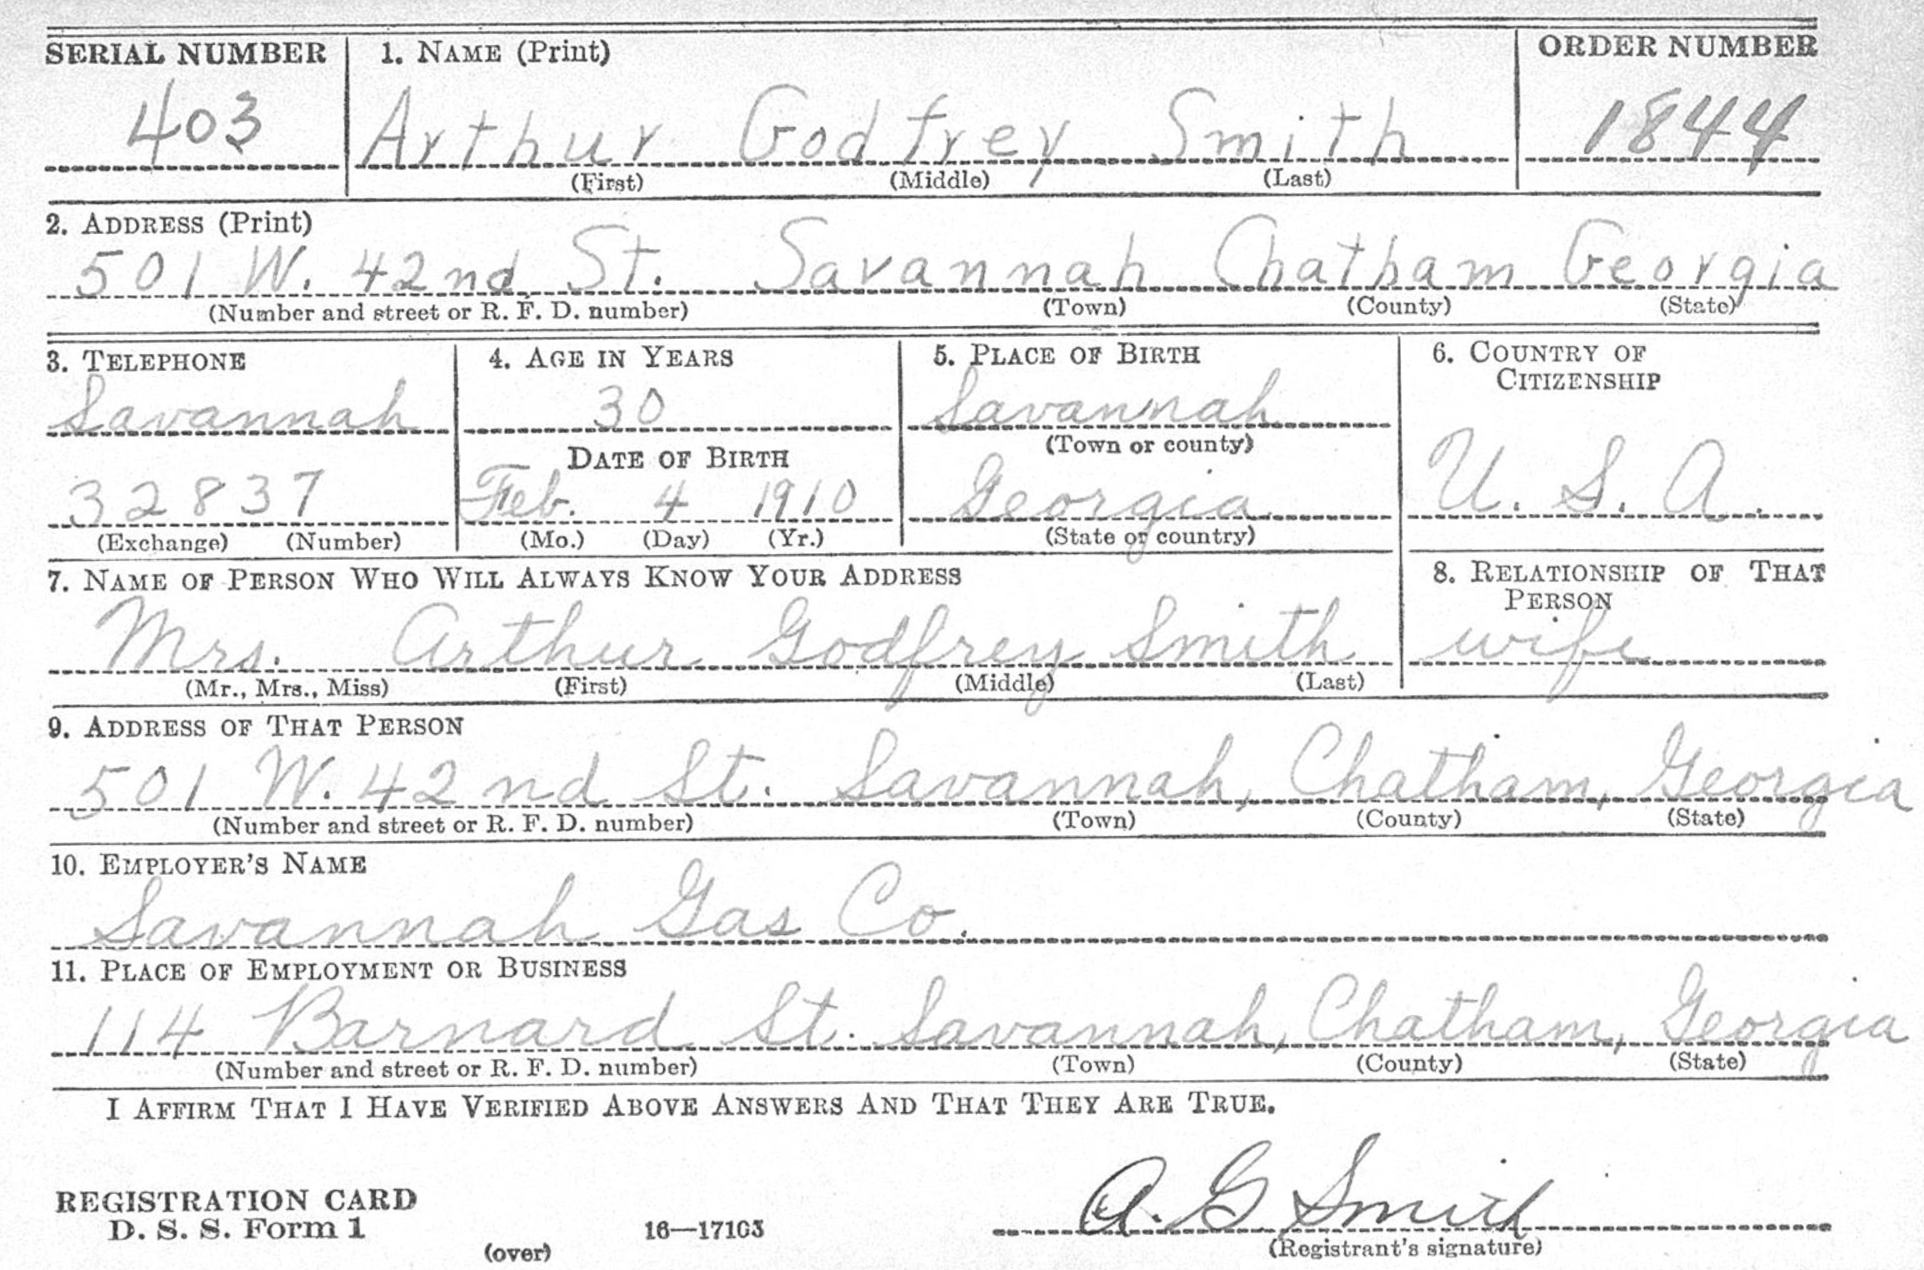 SERIAL NUMBER 1. NAME (Print) ORDER NUMBER
403 Arthur Godfrey Smith 1844
(First) (Middle) (Last)
2. ADDRESS (Print)
501 W. 42nd St. Savannah Chatham Georgia
(Number and street or R. F. D. number) (Town) (County) (State)
3. TELEPHONE 4. AGE IN YEARS 5. PLACE OF BIRTH 6. COUNTRY OF
CITIZENSHIP
Savannah 30 Savannah
(Town or county)
DATE OF BIRTH
32837 Feb. 4 1910 Georgia U. S. A.
(Exchange) (Number) (Mo.) (Day) (Yr.) (State or country)
7. NAME OF PERSON WHO WILL ALWAYS KNOW YOUR ADDRESS 8. RELATIONSHIP OF THAT
PERSON
Mrs. Arthur Godfrey Smith wife
(Mr., Mrs., Miss) (First) (Middle) (Last)
9. ADDRESS OF THAT PERSON
501 W. 42nd St. Savannah, Chatham, Georgia
(Number and street or R. F. D. number) (Town) (County) (State)
10. EMPLOYER'S NAME
Savannah Gas Co.
11. PLACE OF EMPLOYMENT OR BUSINESS
114 Barnard St. Savannah, Chatham, Georgia
(Number and street or R. F. D. number) (Town) (County) (State)
I AFFIRM THAT I HAVE VERIFIED ABOVE ANSWERS AND THAT THEY ARE TRUE.
A. G Smith
REGISTRATION CARD
D. S. S. Form 1 16—17163
(over) (Registrant's signature)